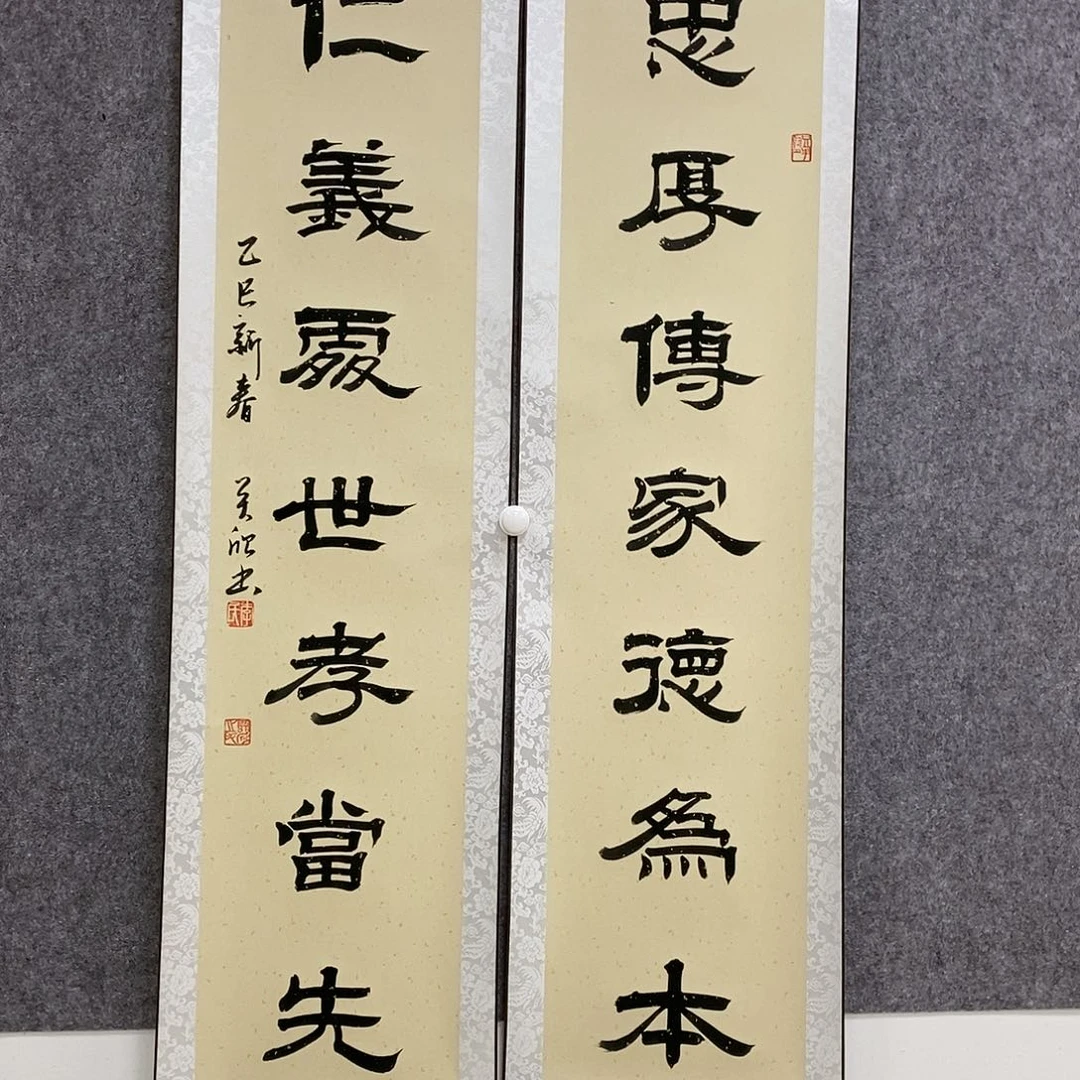 忠厚傳家德為本
仁義處世孝當先
乙巳新春